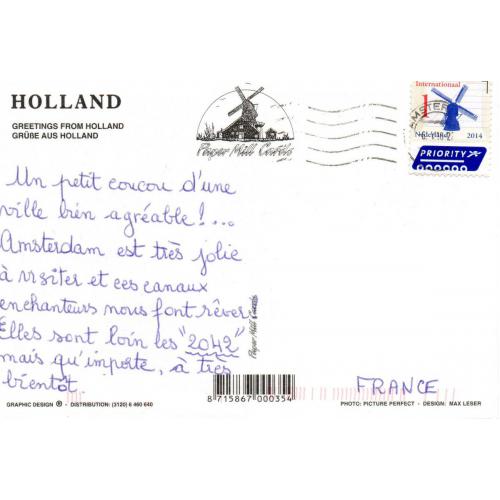 HOLLAND
GREETINGS FROM HOLLAND
GRÜBE AUS HOLLAND
Paper Mill Cards
Internationaal
1
Nederland 2014
PRIORITY
AMSTER
Un petit coucou d'une
ville bien agréable !...
Amsterdam est très jolie
à visiter et ces canaux
enchanteurs nous font rêver
Elles sont loin les "2042"
mais qu'importe, à très
bientôt.
Paper Mill Cards
FRANCE
8 715867 000354
GRAPHIC DESIGN ® - DISTRIBUTION: (3120) 6 460 640
PHOTO: PICTURE PERFECT - DESIGN: MAX LESER